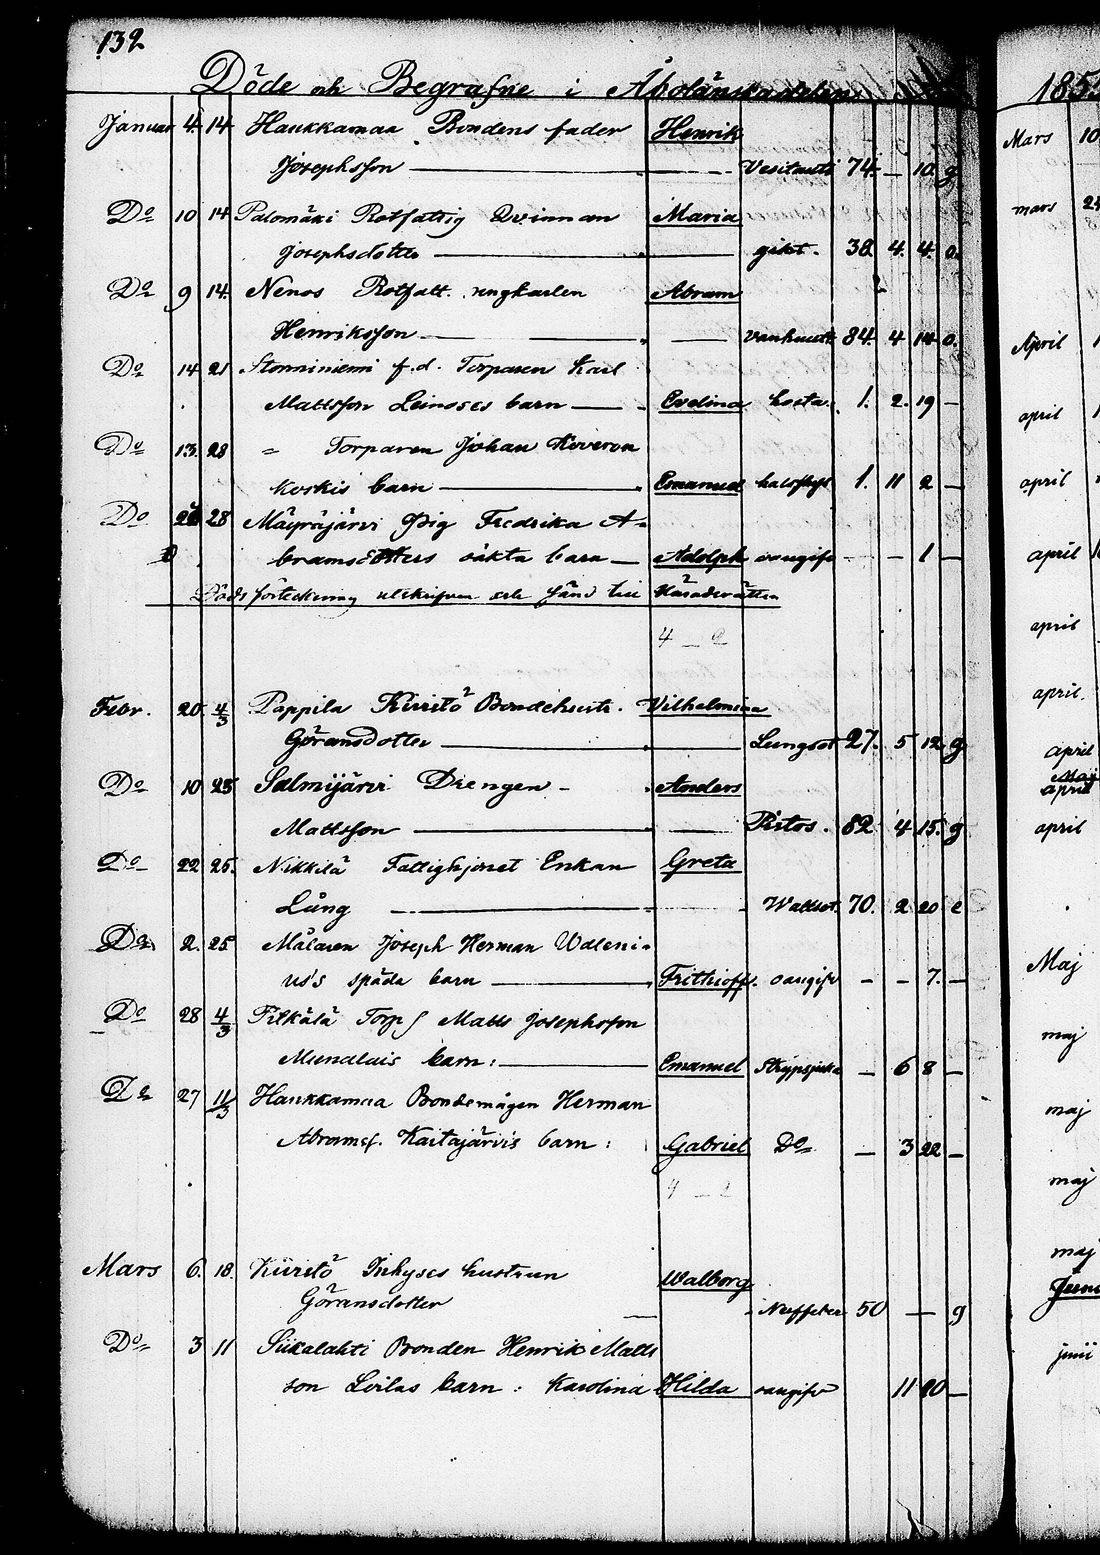 132
Döde och Begrafne i Åbolänskadelen
Januar 4. 14. Haukkamaa Bondens fader Henrik
Josephsson Vesitauti 74. — 10. g
Do 10 14 Palomäki Rotfattig Qvinnan Maria
Josephsdotter gikt. 38. 4. 4. o.
Do 9 14. Nenos Rotfatt. ungkarlen Abram
Henriksson Vanhuutt. 84. 4 14 o.
Do 14 21 f.d. Torparen Karl
Mattsson Leinoses barn Evelina hosta. 1. 2. 19 —
Do 13. 28 " Torparen Johan Koveron
koskis barn Emanuel halsflyt 1. 11 2 —
Do 28 Mäyräjärvi Pig Fredrika A-
bramsdotters oäkta barn Adolph oangifv — — 1 —
Döds förteckning utskrifven och sänd till Häradsrätten
4 — 2
Febr. 20. 4/3 Pappila Kiiritö Bondehustr. Vilhelmina
Göransdotter Lungsot 27. 5 12 g
Do 10 25 Salmijärvi Drengen Anders
Mattsson Pistos. 82 4 15. g
Do 22 25. Nikkilä Fattighjonet Enkan Greta
Lång Wattsot. 70. 2 20 e
Do 2. 25 Målaren Joseph Herman Waleni-
us's späda barn Frithioff. oangifv — — 7. —
Do 28 4/3 Pilkälä Torp Matts Josephsson
barn: Emanuel Strypsjuka — 6 8 —
Do 27 11/3 Haukkamaa Bondemågen Herman
Abramss. Kaitajärvis barn: Gabriel Do — 3 22 —
4 — 2
Mars 6. 18. Kiiritö Inhyses hustrun Walborg
Göransdotter Nerffeber 50 — g
Do 3 11 Siikalahti Bonden Henrik Matts
son Leilas barn: Karolina Hilda oangifv 11 20 —
185
Mars 10
mars 2
April 1
april 1
april
april 1
april
april.
april
Maj
april
april
Maj
maj
maj
maj
maj
Juni
juni